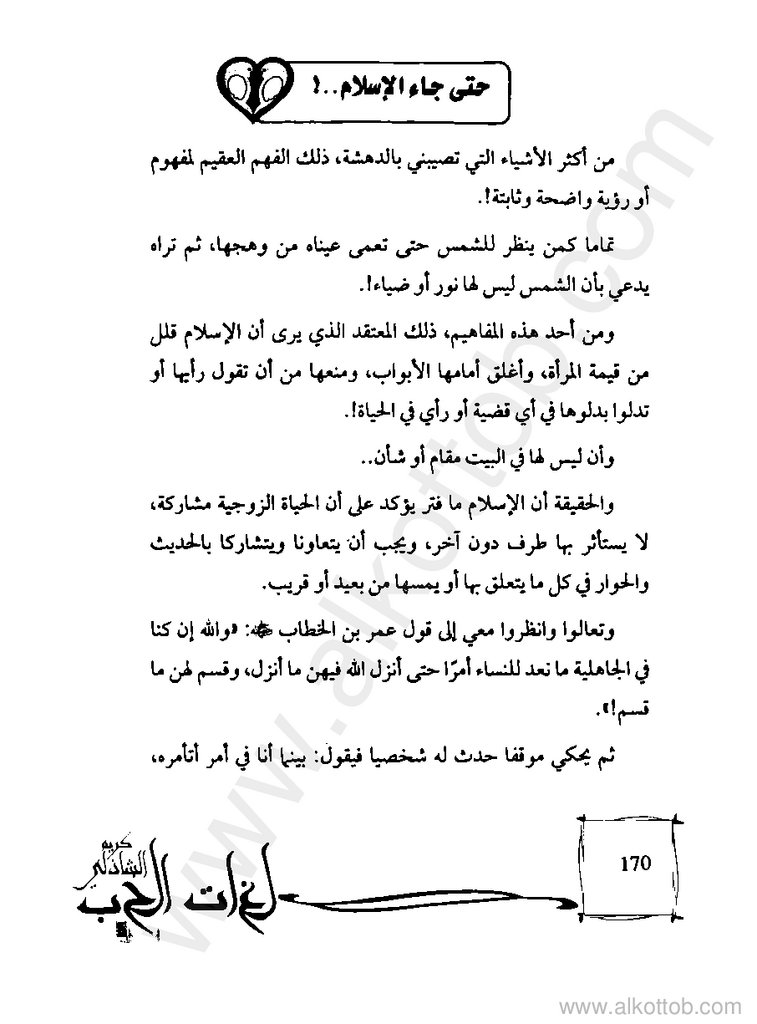 حتى جاء الإسلام..!
من أكثر الأشياء التي تصيبني بالدهشة، ذلك الفهم العقيم لمفهوم
أو رؤية واضحة وثابتة!.
تماما كمن ينظر للشمس حتى تعمى عيناه من وهجها، ثم تراه
يدعي بأن الشمس ليس لها نور أو ضياء!.
ومن أحد هذه المفاهيم، ذلك المعتقد الذي يرى أن الإسلام قلل
من قيمة المرأة، وأغلق أمامها الأبواب، ومنعها من أن تقول رأيها أو
تدلوا بدلوها في أي قضية أو رأي في الحياة!.
وأن ليس لها في البيت مقام أو شأن..
والحقيقة أن الإسلام ما فتر يؤكد على أن الحياة الزوجية مشاركة،
لا يستأثر بها طرف دون آخر، ويجب أن يتعاونا ويتشاركا بالحديث
والحوار في كل ما يتعلق بها أو يمسها من بعيد أو قريب.
وتعالوا وانظروا معي إلى قول عمر بن الخطاب ﷺ: «والله إن كنا
في الجاهلية ما نعد للنساء أمرًا حتى أنزل الله فيهن ما أنزل، وقسم لهن ما
قسم!».
ثم يحكي موقفا حدث له شخصيا فيقول: بينما أنا في أمر أتأمره،
170
كريم
الشاذلي
لغات الحب
www.alkottob.com
www.alkottob.com